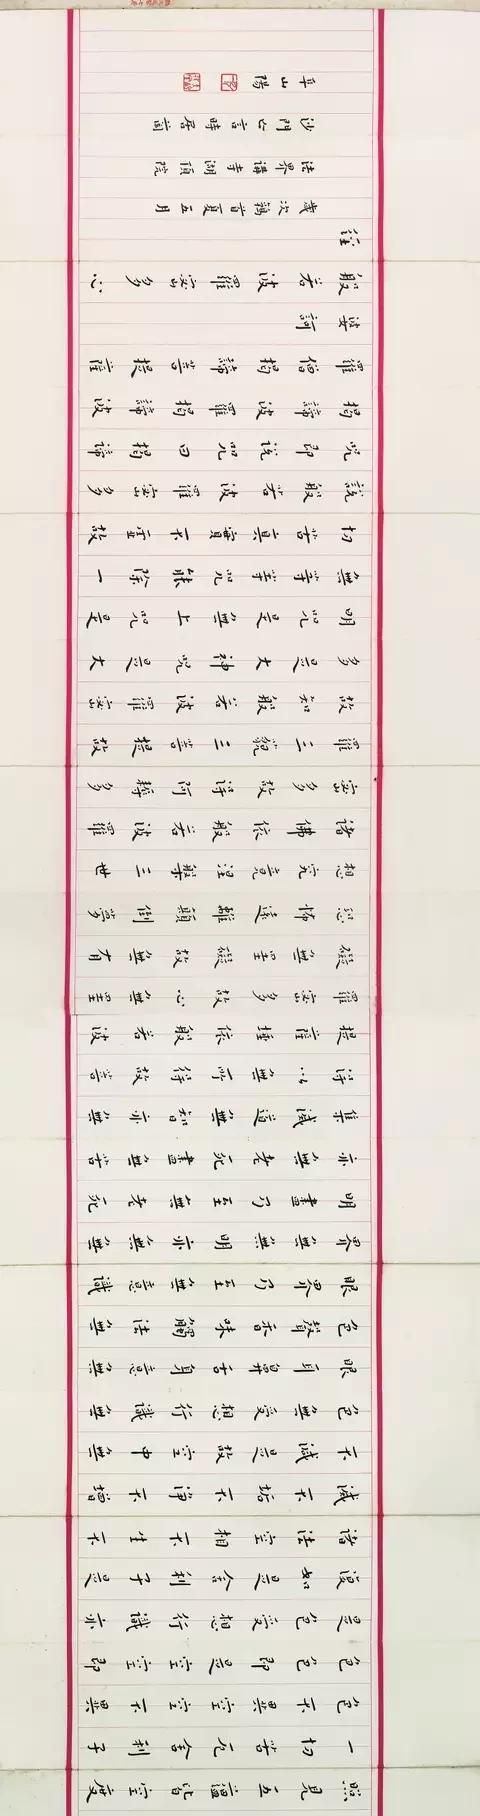 照見五蘊皆空度
一切苦厄舍利子
色不異空空不異
色色即是空空即
是色受想行識亦
復如是舍利子是
諸法空相不生不
滅不垢不淨不增
不減是故空中無
色無受想行識無
眼耳鼻舌身意無
色聲香味觸法無
眼界乃至無意識
界無無明亦無無
明盡乃至無老死
亦無老死盡無苦
集滅道無智亦無
得以無所得故菩
提薩埵依般若波
羅密多故心無罣
礙無罣礙故無有
恐怖遠離顛倒夢
想究竟涅槃三世
諸佛依般若波羅
密多故得阿耨多
羅三藐三菩提故
故知般若波羅密
多是大神咒是大
明咒是無上咒是
無等等咒能除一
切苦真實不虛故
說般若波羅密多
咒即說咒曰揭諦
揭諦波羅揭諦波
羅僧揭諦菩提薩
婆訶
般若波羅密多心
經
歲次鶉首夏五月
法界講寺湖頂院
沙門亡言時居
山陽